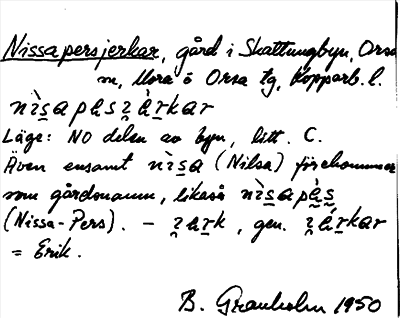 Nissapersjerkar, gård i Skattungbyn, Orsa
sn, Mora o Orsa tg, Kopparb. l.
nìsapęsʒèrkar
Läge: NO delen av byn, litt. C.
Även ensamt nìsa (Nilsa) förekommer
som gårdsnamn, likaså nìsapęs
(Nissa-Pers). – ʒærk, gen. ʒérkar
= Erik.
B. Granholm 1950